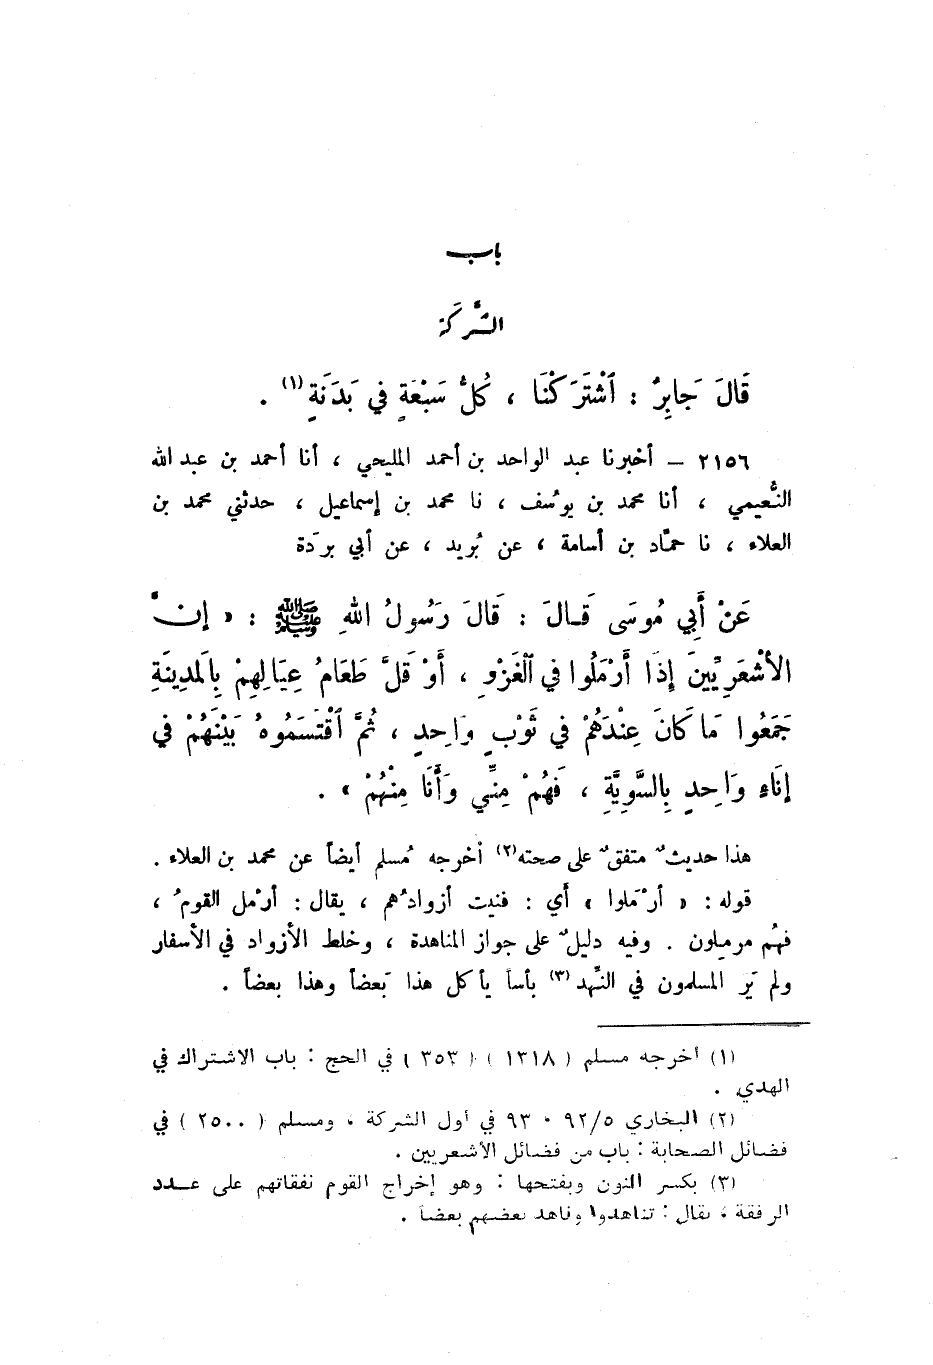 باب
الشَّرِكَة
قَالَ جَابِرٌ : ٱشْتَرَكْنَا ، كُلُّ سَبْعَةٍ فِي بَدَنَةٍ (١) .
٢١٥٦ – أخبرنا عبد الواحد بن أحمد المليحي ، أنا أحمد بن عبد الله
النُّعيمي ، أنا محمد بن يوسُف ، نا محمد بن إسماعيل ، حدثني محمد بن
العلاء ، نا حمَّاد بن أسامة ، عن بُريد ، عن أبي بردَة
عَنْ أَبِي مُوسَى قَالَ : قَالَ رَسُولُ اللهِ ﷺ : « إِنَّ
الأَشْعَرِيِّينَ إِذَا أَرْمَلُوا فِي ٱلْغَزْوِ ، أَوْ قَلَّ طَعَامُ عِيَالِهِمْ بِالْمَدِينَةِ
جَمَعُوا مَا كَانَ عِنْدَهُمْ فِي ثَوْبٍ وَاحِدٍ ، ثُمَّ ٱقْتَسَمُوهُ بَيْنَهُمْ فِي
إِنَاءٍ وَاحِدٍ بِالسَّوِيَّةِ ، فَهُمْ مِنِّي وَأَنَا مِنْهُمْ » .
هذا حديثٌ متفقٌ على صحته (٢) أخرجه مُسلم أيضاً عن محمد بن العلاء .
قوله : « أرْمَلوا » أي : فنيت أزوادُهم ، يقال : أرْمل القومُ ،
فهُم مرملون . وفيه دليلٌ على جواز المناهدة ، وخلط الأزواد في الأسفار
ولم يَر المسلمون في النِّهد (٣) بأساً يأكل هذا بَعضاً وهذا بعضاً .
(١) أخرجه مسلم ( ١٣١٨ ) ( ٣٥٣ ) في الحج : باب الاشتراك في
الهدي .
(٢) البخاري ٩٢/٥ ، ٩٣ في أول الشركة ، ومسلم ( ٢٥٠٠ ) في
فضائل الصحابة : باب من فضائل الأشعريين .
(٣) بكسر النون وبفتحها : وهو إخراج القوم نفقاتهم على عدد
الرفقة ، يقال : تناهدوا وناهد بعضهم بعضاً .